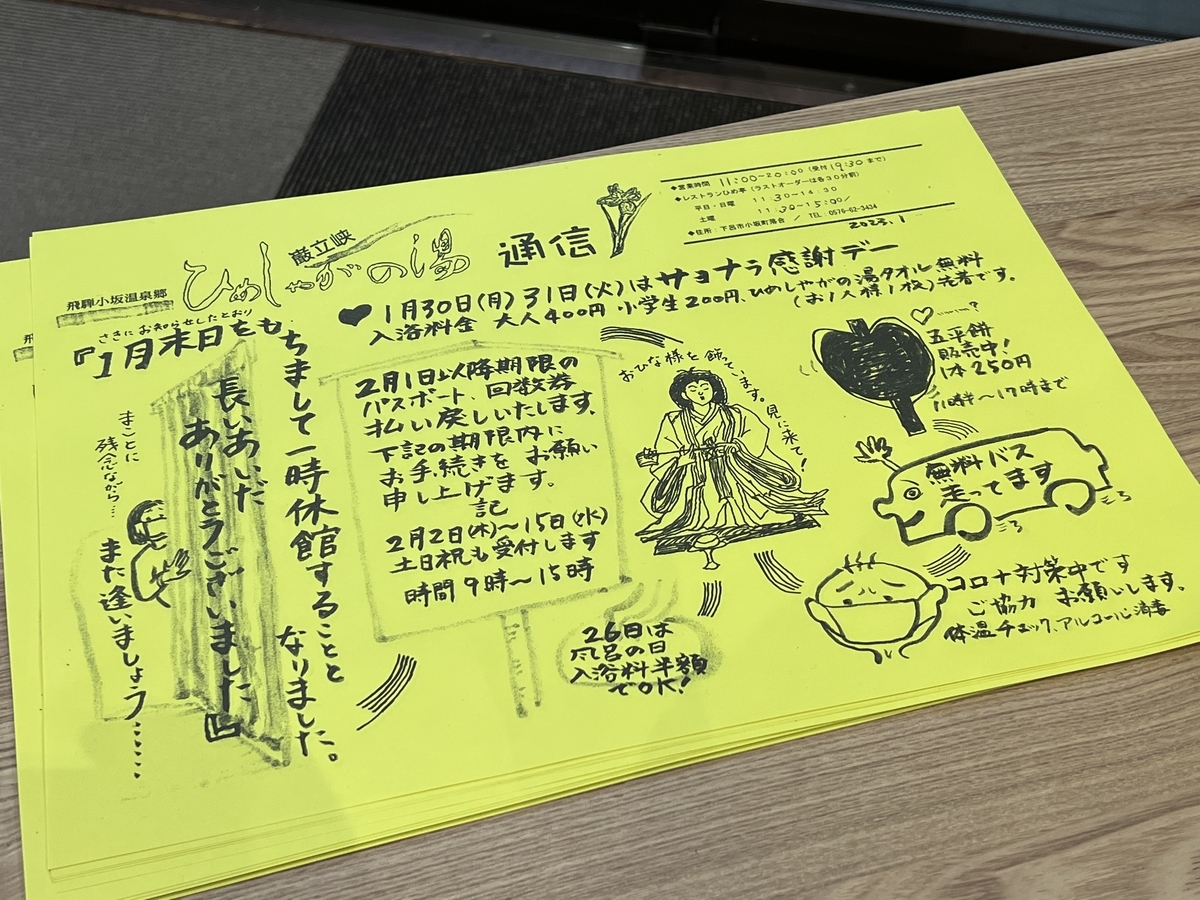 飛騨小坂温泉郷
巌立峡
ひめしゃがの湯 通信
◆営業時間 11:00~20:00 (受付19:30まで)
◆レストランひめ亭 (ラストオーダーは各30分前)
平日・日曜 11:30~14:30
土曜 11:30~15:00/
◆住所:下呂市小坂町落合 / TEL 0576-62-3434
2023.1
♥1月30日(月)31日(火)はサヨナラ感謝デー
入浴料金 大人400円 小学生200円、ひめしゃがの湯タオル無料
(お1人様1枚)先着です。
さきにお知らせしたとおり
『1月末日をも
ちまして一時休館することと
なりました。
長いあいだ
ありがとうございました』
まことに
残念ながら…
また逢いましょう……
2月1日以降期限の
パスポート、回数券
払い戻しいたします。
下記の期限内に
お手続きを お願い
申し上げます。
記
2月2日(木)~15日(水)
土日祝も受付します
時間9時~15時
26日は
風呂の日
入浴料半額
でOK!
おひな様を飾っています。見に来て!
♡……?
五平餅
販売中!
1本250円
10時~17時まで
無料バス
走ってます
コロナ対策中です
ご協力 お願いします。
体温チェック、アルコール消毒